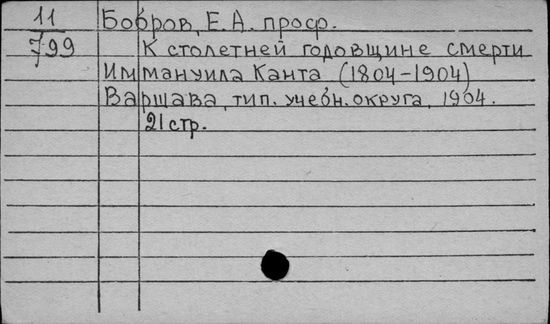 11 Бобров, Е. А. проср.
799 К столетней годовщине смерти
Иммануила Канта (1804-1904)
Варшава, тип. учебн. округа, 1904.
21 стр.